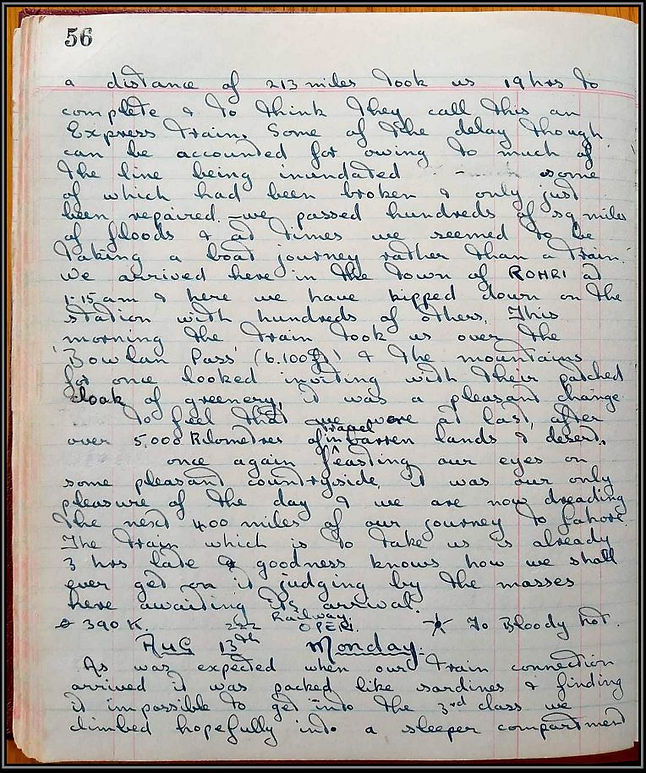 56
a distance of 213 miles took us 19 hrs to
complete & to think they call this an
Express train. Some of the delay though
can be accounted for owing to much of
the line being inundated some
of which had been broken & only just
been repaired - we passed hundreds of sq miles
of floods & at times we seemed to be
taking a boat journey rather than a train.
We arrived here in the town of ROHRI at
1-15 am & here we have kipped down on the
station with hundreds of others. This
morning the train took us over the
'Bowlan Pass' (6.100 ft) & the mountains
for once looked inviting with their patched
cloak of greenery, it was a pleasant change
to feel that we were at last, after
over 5,000 Kilometres of travel in barren lands & desert,
once again feasting our eyes on
some pleasant countryside, it was our only
pleasure of the day & we are now dreading
the next 400 miles of our journey to Lahore
The train which is to take us is already
3 hrs late & goodness knows how we shall
ever get on it judging by the masses
here awaiting its arrival.
390 K. Railway OPEN. To Bloody hot.
AUG 13th Monday.
As was expected when our train connection
arrived it was packed like sardines & finding
it impossible to get into the 3rd class we
climbed hopefully into a sleeper compartment